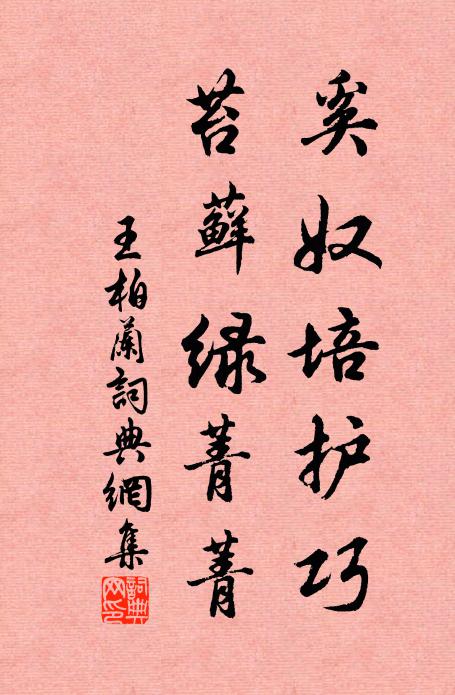 奚奴培护巧
苔藓绿菁菁
王柏兰詞典網集
詞典網印